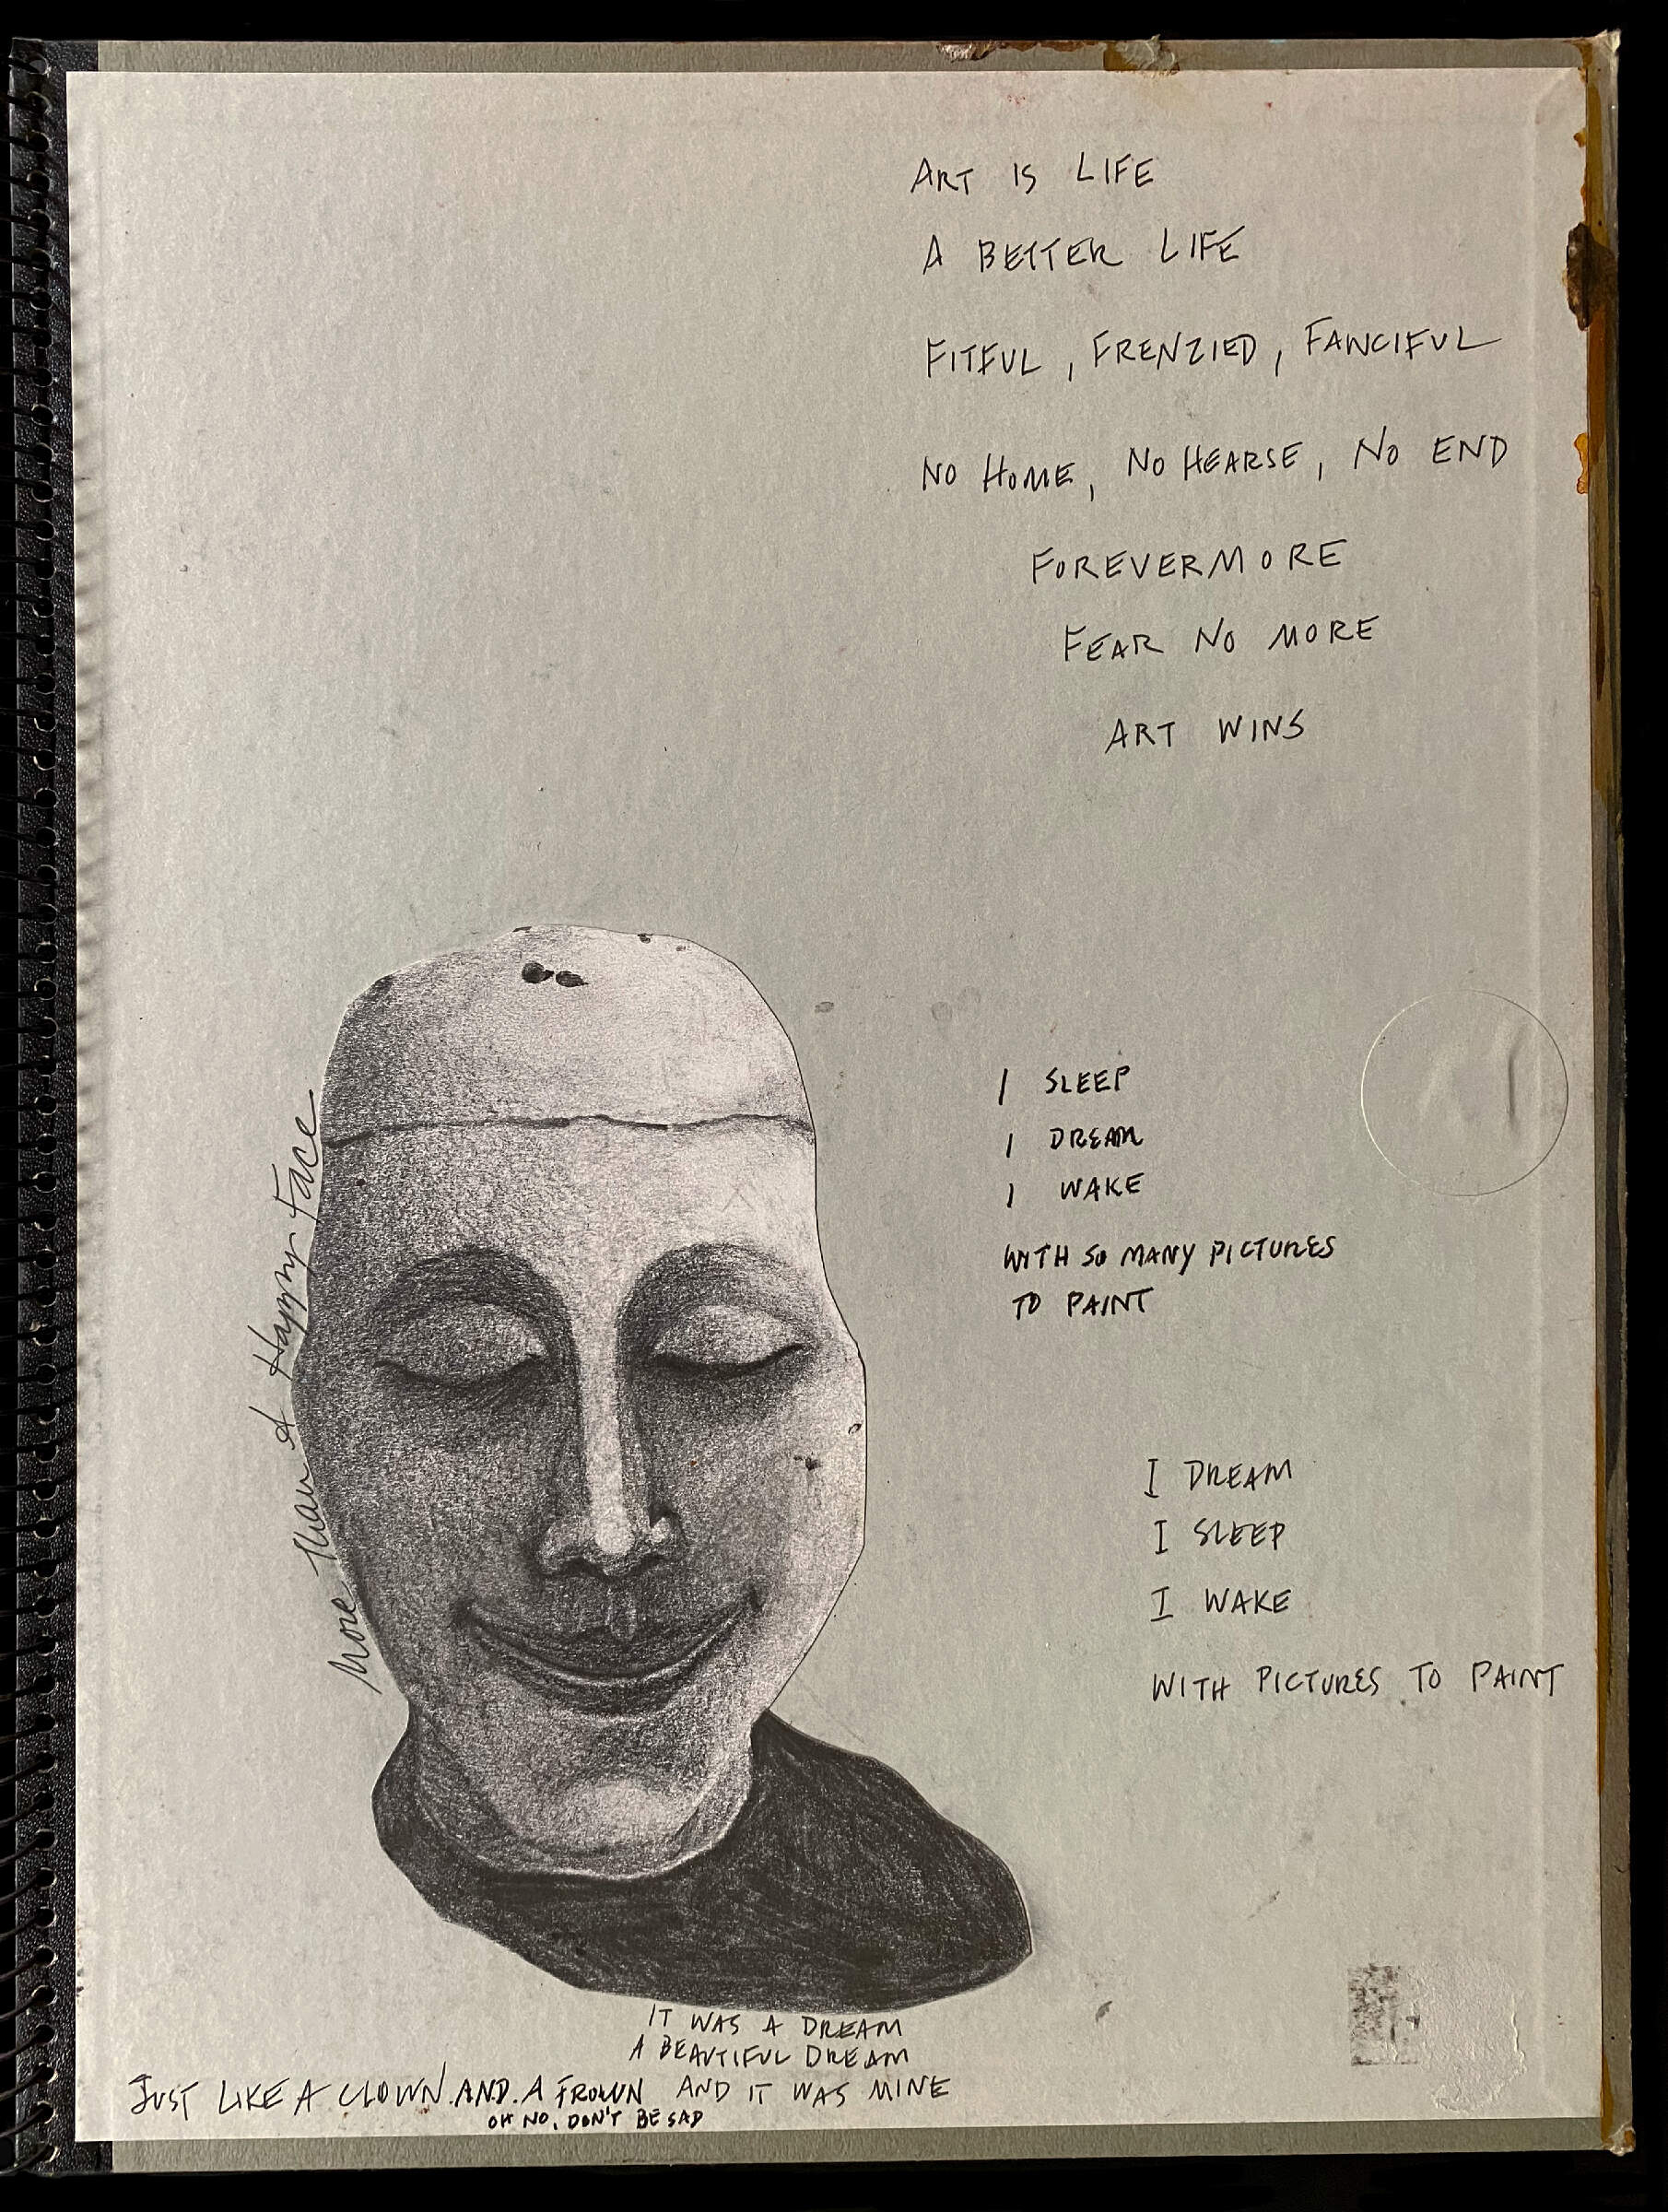 ART IS LIFE
A BETTER LIFE
FITFUL, FRENZIED, FANCIFUL
NO HOME, NO HEARSE, NO END
FOREVERMORE
FEAR NO MORE
ART WINS
More Than A Happy Face
I SLEEP
I DREAM
I WAKE
WITH SO MANY PICTURES
TO PAINT
I DREAM
I SLEEP
I WAKE
WITH PICTURES TO PAINT
IT WAS A DREAM
A BEAUTIFUL DREAM
JUST LIKE A CLOWN.AND.A FROWN AND IT WAS MINE
OH NO, DON'T BE SAD